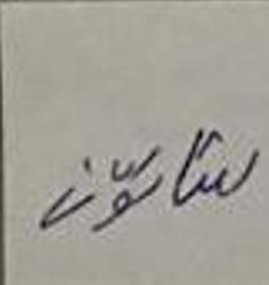 ستاوّن